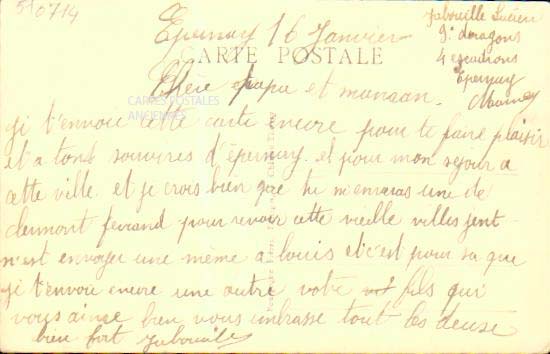 510714
Epernay 16 Janvier
CARTE POSTALE
Jabouille Lucien
9e dragons
4 escadrons
Epernay
Marne
Chère papa et maman.
CARTES POSTALES
ANCIENNES
ji t'envoie cette carte encre pour te faire plaisir
et a tous souvires d'épernay. et pour mon sejour a
cette ville. et je crois bien que tu m'envaras une de
clermont ferrand pour revoir cette vieille villes jent
n'est envoyer une même a louis et c'est pour sa que
ji t'envoie encre une autre votre fils qui
vous aime bien vous embrasse tout les deuse
bien fort Jabouille